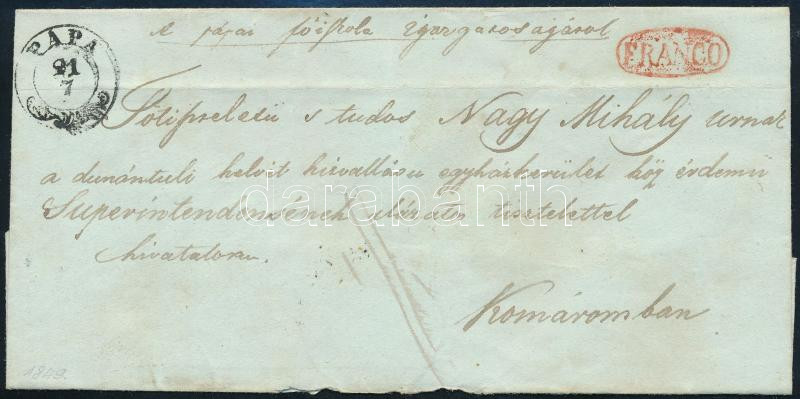 A pápai főiskola Igazgatóságától
PÁPA
21
7
FRANCO
Főtiszteletü s tudos Nagy Mihály urnak
a dunántuli helvit hitvallásu egyházkerület hőg érdemü
Superintendensének alázatos tisztelettel
hivatalosan.
Komáromban
1849.
darabanth